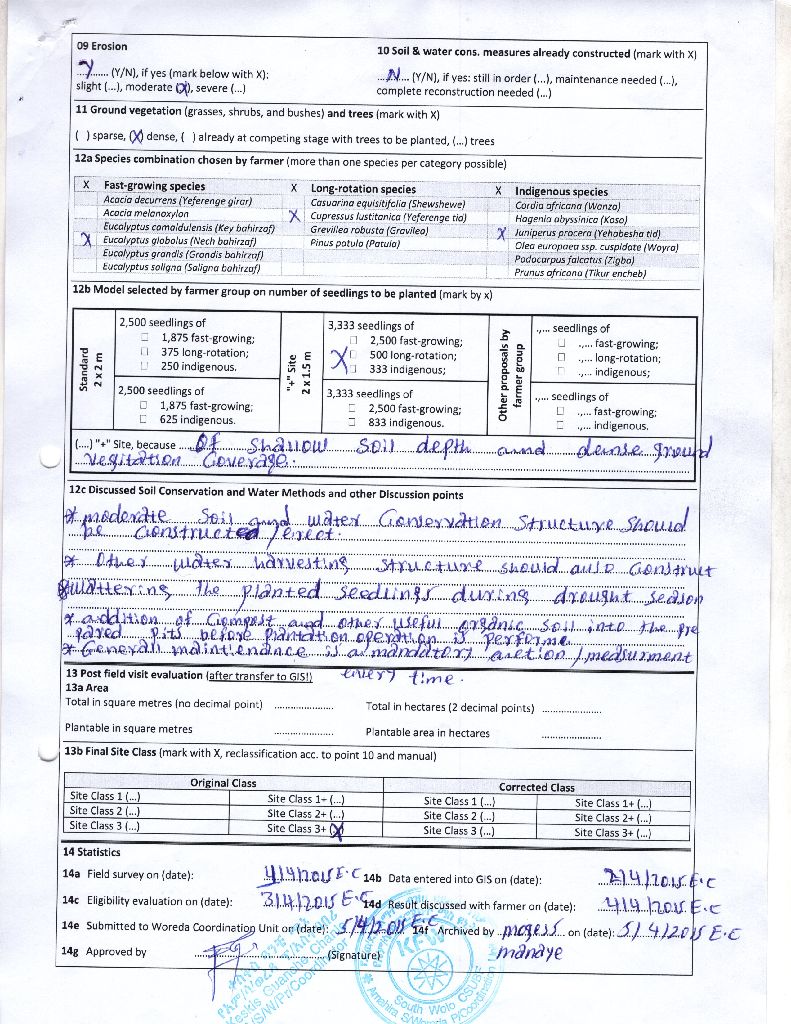 09 Erosion
10 Soil & water cons. measures already constructed (mark with X)
...Y...... (Y/N), if yes (mark below with X):
....N.... (Y/N), if yes: still in order (...), maintenance needed (...),
slight (...), moderate (X), severe (...)
complete reconstruction needed (...)
11 Ground vegetation (grasses, shrubs, and bushes) and trees (mark with X)
( ) sparse, (X) dense, ( ) already at competing stage with trees to be planted, (...) trees
12a Species combination chosen by farmer (more than one species per category possible)
X Fast-growing species X Long-rotation species X Indigenous species
Acacia decurrens (Yeferenge girar) Casuarina equisitifolia (Shewshewe) Cordia africana (Wanza)
Acacia melanoxylon X Cupressus lustitanica (Yeferenge tid) Hagenia abyssinica (Koso)
Eucalyptus camaldulensis (Key bahirzaf) Grevillea robusta (Gravilea) X Juniperus procera (Yehabesha tid)
X Eucalyptus globolus (Nech bahirzaf) Pinus patula (Patula) Olea europaea ssp. cuspidate (Woyra)
Eucalyptus grandis (Grandis bahirzaf) Podocarpus falcatus (Zigba)
Eucalyptus saligna (Saligna bahirzaf) Prunus africana (Tikur encheb)
12b Model selected by farmer group on number of seedlings to be planted (mark by x)
Standard
2 x 2 m
2,500 seedlings of
☐ 1,875 fast-growing;
☐ 375 long-rotation;
☐ 250 indigenous.
2,500 seedlings of
☐ 1,875 fast-growing;
☐ 625 indigenous.
"+" Site
2 x 1.5 m
3,333 seedlings of
☐ 2,500 fast-growing;
X ☐ 500 long-rotation;
☐ 333 indigenous;
3,333 seedlings of
☐ 2,500 fast-growing;
☐ 833 indigenous.
Other proposals by
farmer group
.,... seedlings of
☐ .,... fast-growing;
☐ .,... long-rotation;
☐ .,... indigenous;
.,... seedlings of
☐ .,... fast-growing;
☐ .,... indigenous.
(....) "+" Site, because .. Of shallow soil depth and dense ground
vegitation coverage.
12c Discussed Soil Conservation and Water Methods and other Discussion points
* moderate soil and water conservation structure should
be constructed / erect.
* Other water harvesting structure should also construct
wattering the planted seedlings during drought season
* addition of compost and other useful organic soil into the pre
pared pits before plantation operation is performe
* Generall maintienance is a mandatory action / measurment
every time.
13 Post field visit evaluation (after transfer to GIS!)
13a Area
Total in square metres (no decimal point) .................. Total in hectares (2 decimal points) ..................
Plantable in square metres .................. Plantable area in hectares ..................
13b Final Site Class (mark with X, reclassification acc. to point 10 and manual)
Original Class Corrected Class
Site Class 1 (...) Site Class 1+ (...) Site Class 1 (...) Site Class 1+ (...)
Site Class 2 (...) Site Class 2+ (...) Site Class 2 (...) Site Class 2+ (...)
Site Class 3 (...) Site Class 3+ (X) Site Class 3 (...) Site Class 3+ (...)
14 Statistics
14a Field survey on (date): 4/4/2015 E.C 14b Data entered into GIS on (date): 2/4/2015 E.C
14c Eligibility evaluation on (date): 3/4/2015 E.C 14d Result discussed with farmer on (date): 4/4/2015 E.C
14e Submitted to Woreda Coordination Unit on (date): 5/4/2015 E.C 14f Archived by mogess on (date): 5/4/2015 E.C
manaye
14g Approved by .................. (Signature)
South Wolo